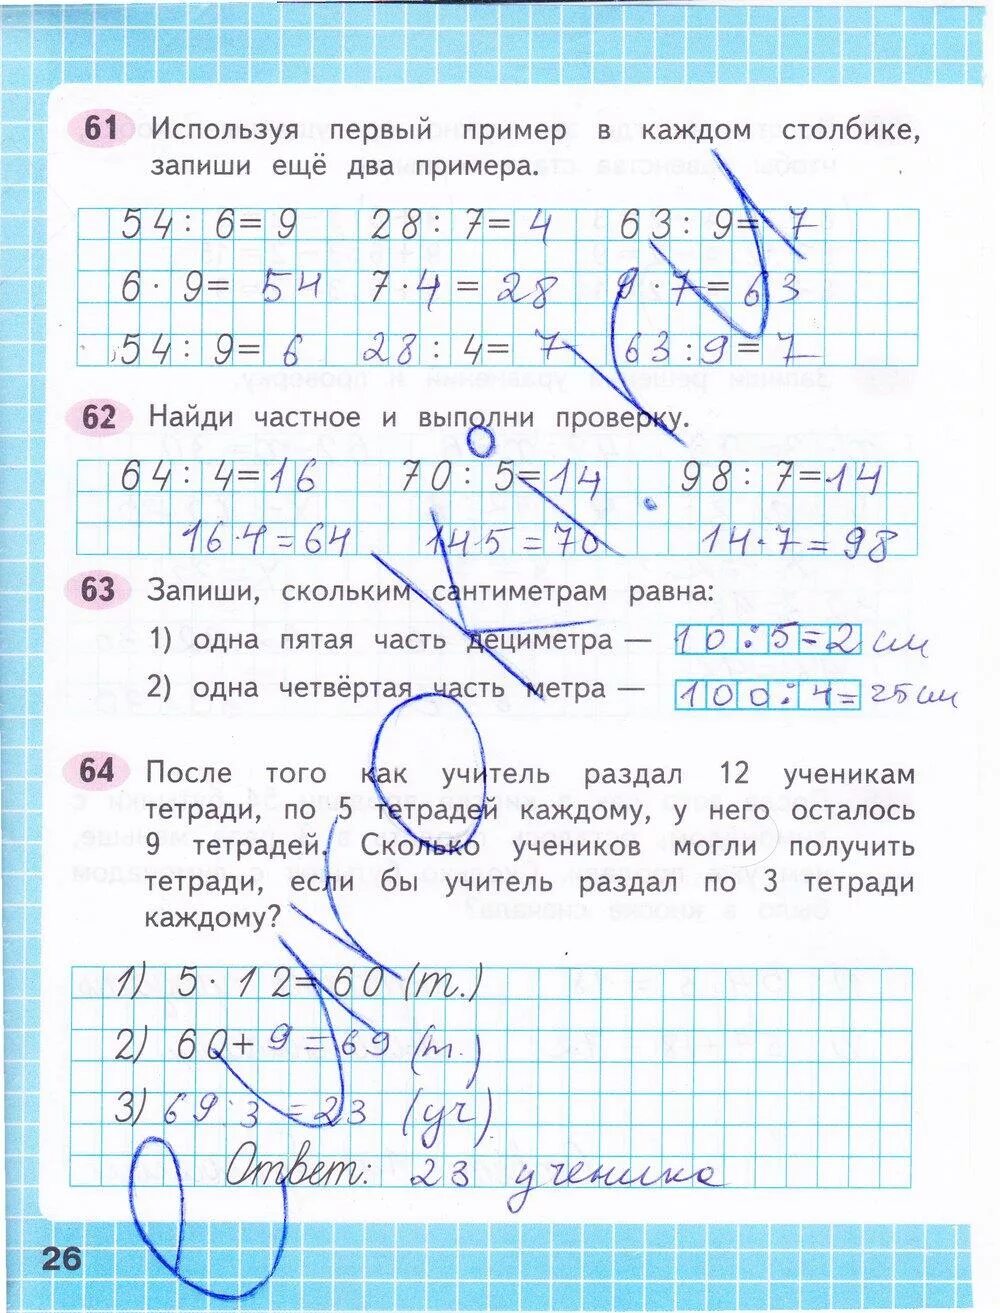 61 Используя первый пример в каждом столбике,
запиши ещё два примера.
54 : 6 = 9 28 : 7 = 4 63 : 9 = 7
6 · 9 = 54 7 · 4 = 28 9 · 7 = 63
54 : 9 = 6 28 : 4 = 7 63 : 9 = 7
62 Найди частное и выполни проверку.
64 : 4 = 16 70 : 5 = 14 98 : 7 = 14
16 · 4 = 64 14 · 5 = 70 14 · 7 = 98
63 Запиши, скольким сантиметрам равна:
1) одна пятая часть дециметра — 10 : 5 = 2 см
2) одна четвёртая часть метра — 100 : 4 = 25 см
64 После того как учитель раздал 12 ученикам
тетради, по 5 тетрадей каждому, у него осталось
9 тетрадей. Сколько учеников могли получить
тетради, если бы учитель раздал по 3 тетради
каждому?
1) 5 · 12 = 60 (т.)
2) 60 + 9 = 69 (т.)
3) 69 : 3 = 23 (уч)
Ответ: 23 ученика
26